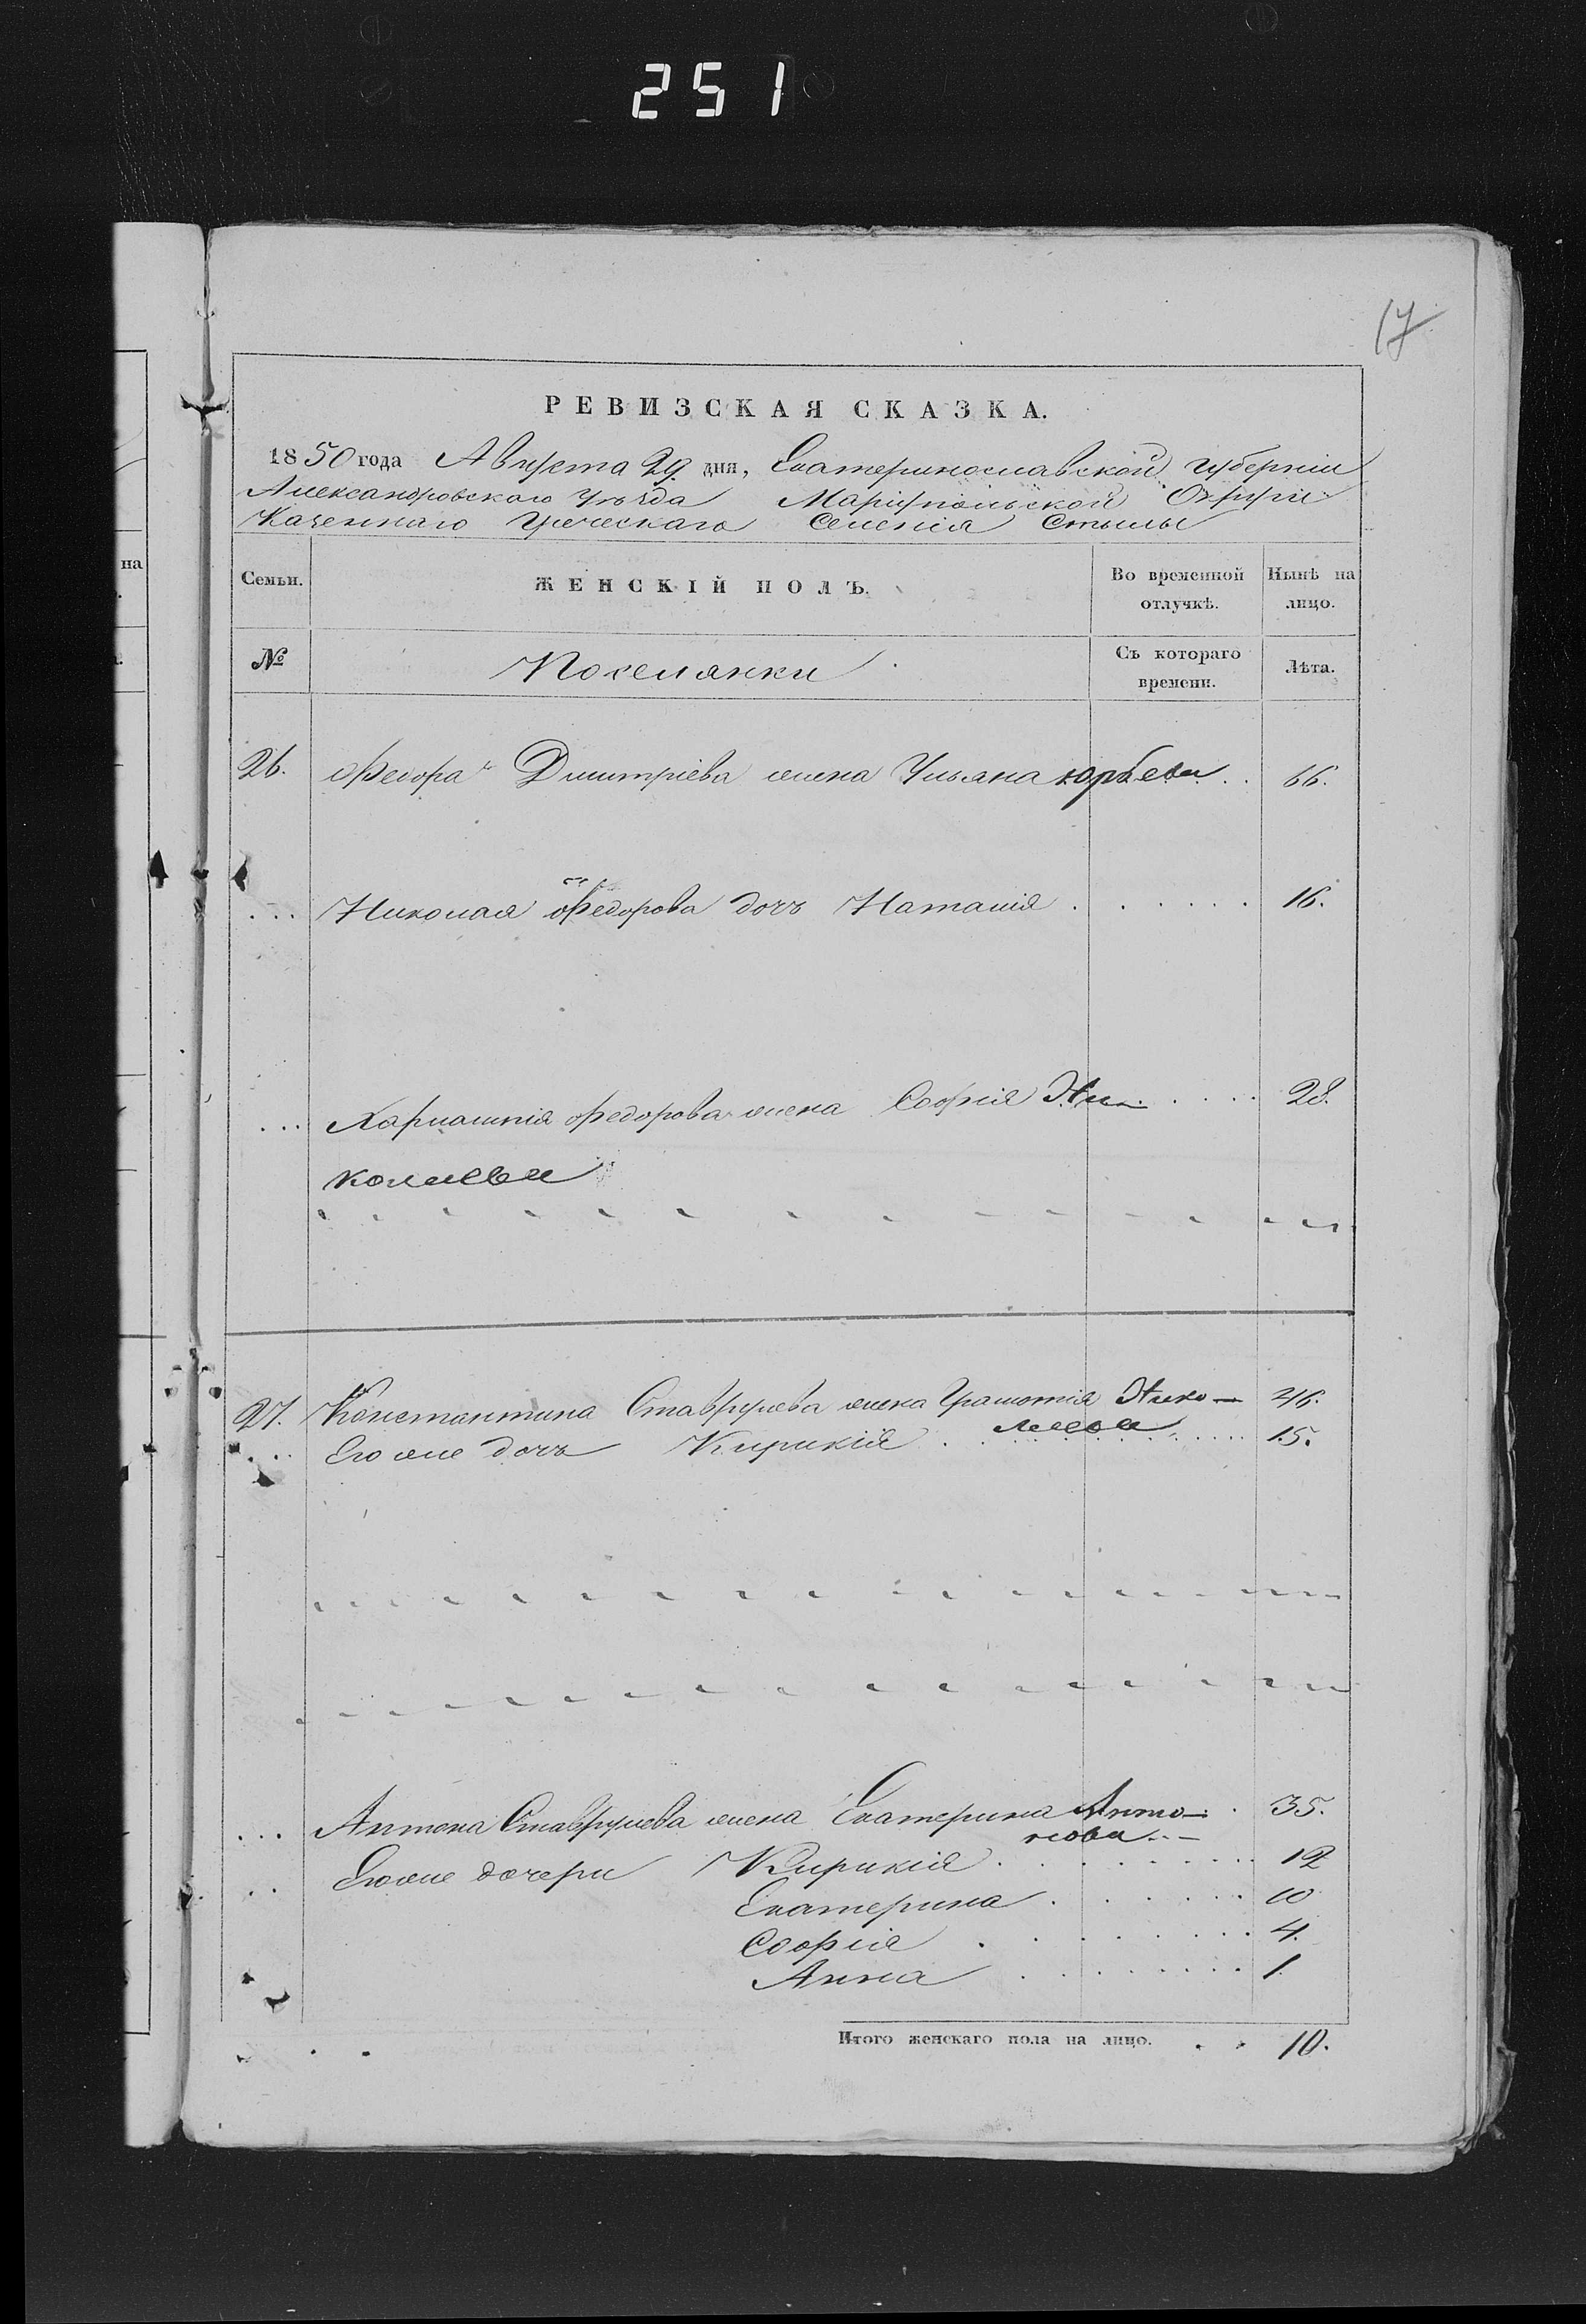 251
17
РЕВИЗСКАЯ СКАЗКА.
1850 года Августа 29 дня, Екатеринославской губернии
Александровского Уѣзда Маріупольской Округи
Казеннаго Греческаго Селенія Стылы
на
Семьи. ЖЕНСКІЙ ПОЛЪ. Во временной отлучкѣ. Нынѣ на лицо.
№ Поселянки Съ котораго времени. Лѣта.
26. Федора Дмитріева жена Ульяна юрьева . 66.
... Николая Федорова дочь Наталія . . . . . . 16.
... Харлампія Федорова жена Софія Ни- . . . . 28.
колаева
27. Константина Ставруева жена Нико- 46.
лаева
.... Его же дочь Кирикія . . . . . . . 15.
... Антона жена Екатерина Анто- . 35.
нова
.. Его же дочери Кирикія . . . . . . . 12
Екатерина . . . . . . 10
Софія . . . . . . . 4.
Анна . . . . . . . 1.
Итого женскаго пола на лицо. . . 10.